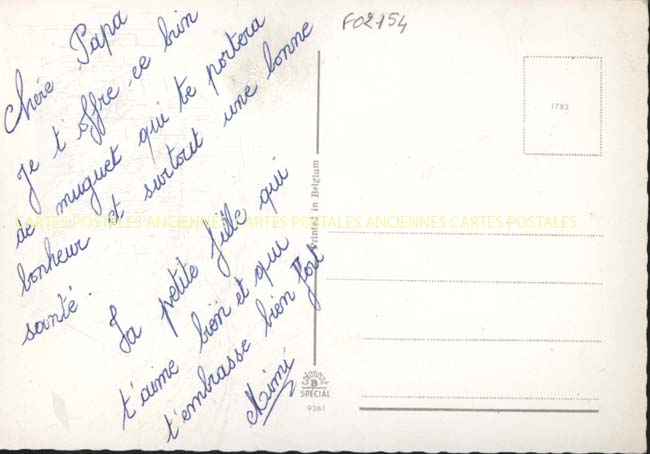 Chère Papa
Je t'offre ce brin
de muguet qui te portera
bonheur et surtout une bonne
santé.
Ta petite fille qui
t'aime bien et qui
t'embrasse bien fort
Mimi
F02154
1783
Printed in Belgium
CARTES POSTALES ANCIENNES CARTES POSTALES ANCIENNES CARTES POSTALES
B
SPÉCIAL
9361